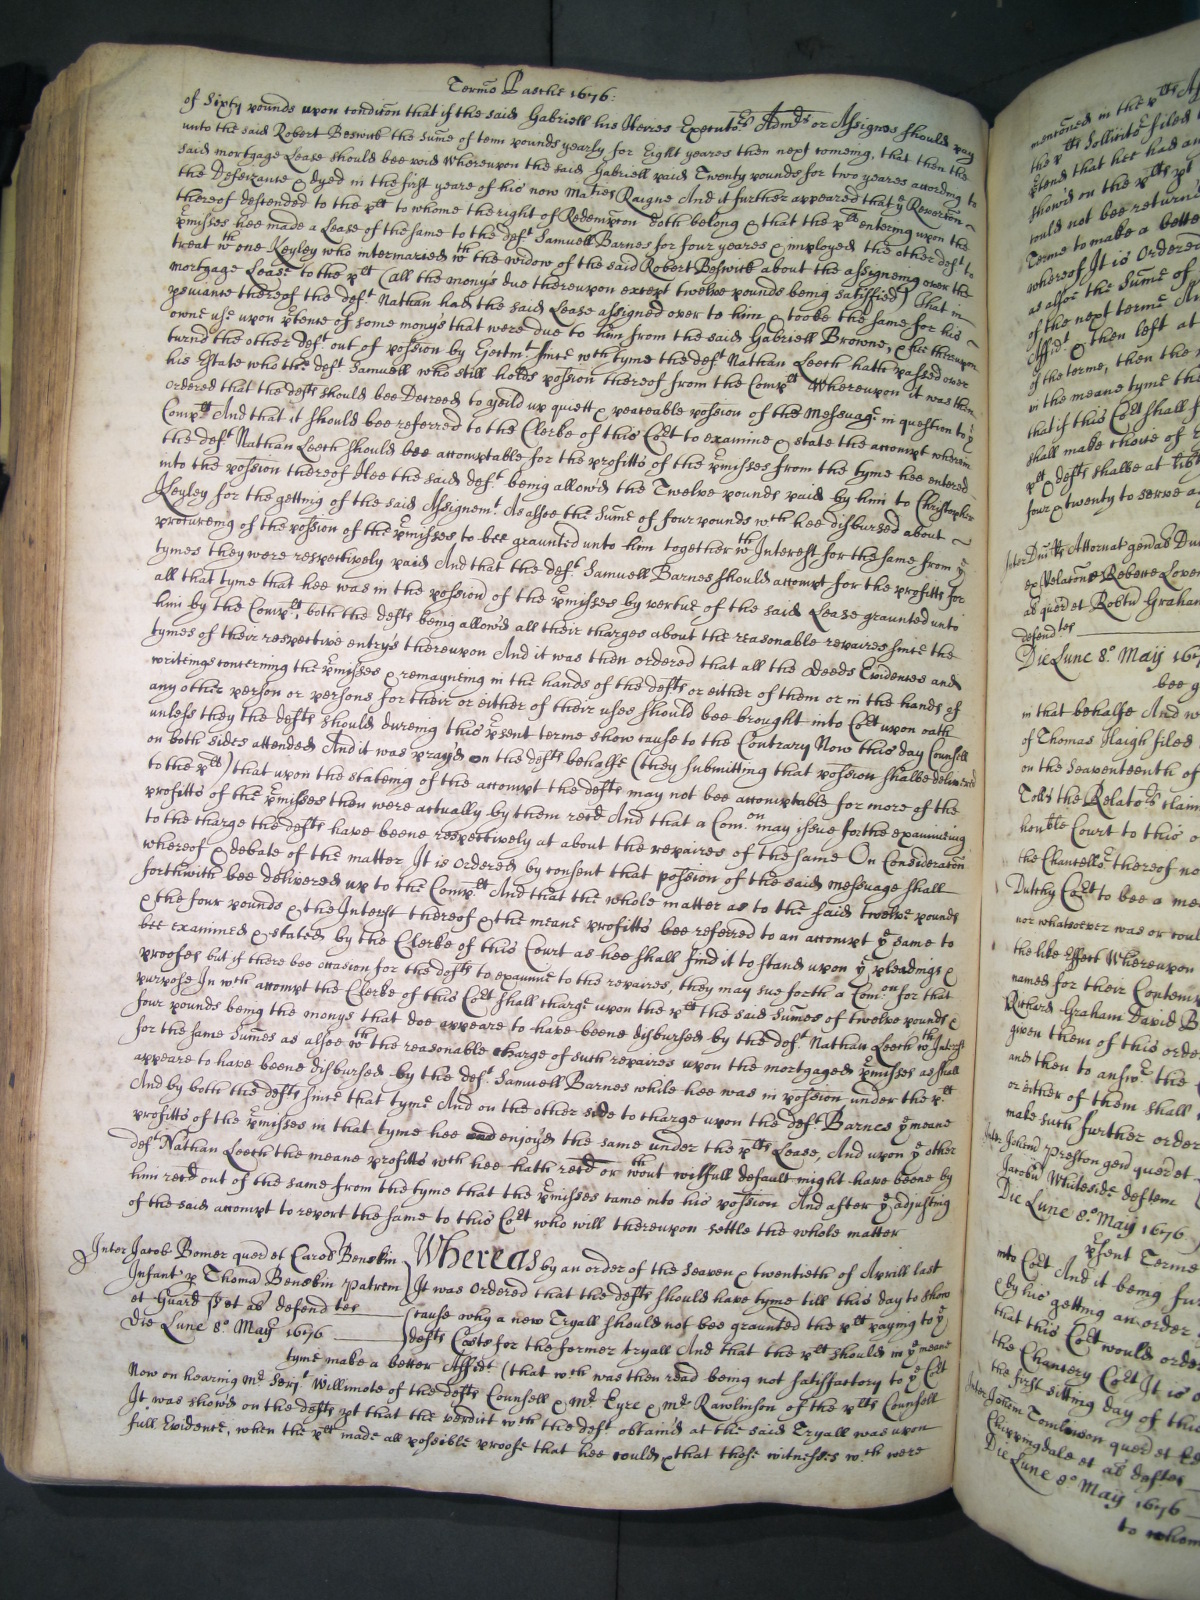 Termo Pasche 1676:
of Sixty pounds upon condicon that if the said Gabriell his Heires Executors Admrs or Assignes should pay
unto the said Robert Beswick the sume of tenn pounds yearly for Eight yeares then next comeing, that then the
said mortgage Lease should bee void Whereupon the said Gabriell paid Twenty pounds for two yeares according to
the Defeizance & dyed in the first yeare of his now Maties Raigne And it further appeared that ye Revercon
thereof descended to the plt to whome the right of Redempcon doth belong & that the plt entering upon the
pmisses hee made a Lease of the same to the deft Samuell Barnes for four yeares & imployed the other deft to
treat wth one Keyley who intermarried wth the widow of the said Robert Beswick about the assigneing over the
mortgage Lease to the plt (all the monys due thereupon except twelve pounds being satisfied) That in
psuance thereof the deft Nathan had the said Lease assigned over to him & tooke the same for his
owne use upon ptence of some monys that were due to him from the said Gabriell Browne, & hee thereupon
turnd the other deft out of possion by Eectmt since wch tyme the deft Nathan Leech hath passed over
his Estate who the deft Samuell who still holds possion thereof from the Complt Whereupon it was then
ordered that the defts should bee Decreed to yeild up quiett & peaceable possion of the Messuage in question to ye
Complt And that it should bee referred to the Clerke of this Cort to examine & state the accompt wherein
the deft Nathan Leech should bee accomptable for the profitts of the pmisses from the tyme hee entered
into the possion thereof Hee the said deft being allowd the Twelve pounds paid by him to Christopher
Keyley for the getting of the said Assignemt As alsoe the Sume of four pounds wch hee disbursed about
procureing of the possion of the pmisses to bee graunted unto him together wth Interest for the same from ye
tymes they were respectively paid And that the deft Samuell Barnes should accompt for the profitts for
all that tyme that hee was in the possion of the pmisses by vertue of the said Lease graunted unto
him by the Complt, both the defts being allowd all their charges about the reasonable repaires since the
tymes of their respective entrys thereupon And it was then ordered that all the Deeds Evidences and
writeings concerning the pmisses & remayneing in the hands of the defts or either of them or in the hands of
any other person or persons for their or either of their uses should bee brought into Cort upon oath
unless they the defts should dureing this psent terme show cause to the Contrary Now this day Counsell
on both sides attended And it was prayd on the defts behalfe (they submitting that possion shalbe delivered
to the plt) that upon the stateing of the accompt the defts may not bee accomptable for more of the
profitts of the pmisses then were actually by them recd And that a Comon may issue for the examining
to the charge the defts have beene respectively at about the repaires of the same On Consideracon
whereof & debate of the matter It is ordered by consent that possion of the said messuage shall
forthwith bee delivered up to the Complt And that the whole matter as to the said twelve pounds
& the four pounds & the Interst thereof & the meane profitts bee referred to an accompt ye same to
bee examined & stated by the Clerke of this Court as hee shall find it to stand upon ye pleadings &
proofes but if there bee occasion for the defts to examine to the repaires, they may sue forth a Comon for that
purpose In wch accompt the Clerke of this Cort shall charge upon the plt the said sumes of twelve pounds &
four pounds being the monys that doe appeare to have beene disbursed by the deft Nathan Leech wth Interest
for the same Sumes as alsoe wth the reasonable charge of such repaires upon the mortgaged pmisses as shall
appeare to have beene disbursed by the deft Samuell Barnes while hee was in possion under the plt
And by both the defts since that tyme And on the other side to charge upon the deft Barnes ye meane
profitts of the pmisses in that tyme hee enjoyd the same under the plts Lease, And upon ye other
deft Nathan Leech the meane profitts wch hee hath recd or wthout wilfull default might have beene by
him recd out of the same from the tyme that the pmisses came into his possion And after ye adjusting
of the said accompt to report the same to this Cort who will thereupon settle the whole matter
Inter Jacob Bomer quer et Carod Benskin
Infant p Thomã Benskin patrem
et Guard &c et al defend tes
Die Lune 8o May 1676
Whereas by an order of the Seaven & twentieth of Aprill last
It was Ordered that the defts should have tyme till this day to show
cause why a new Tryall should not bee graunted the plt paying to ye
defts Costs for the former tryall And that the plt should in ye meane
tyme make a better Affidt (that wch was then read being not satisfactory to ye Cort
Now on hearing Mr Serjt Willimote of the defts Counsell & Mr Eyre & Mr Rawlinson of the plts Counsell
It was showd on the defts pt that the verdict wch the deft obtaind at the said Tryall was upon
full Evidence, when the plt made all possible proofe that hee could & that those witnesses wch were
menconed in the plts
the plts Sollicitr filed
ptend that hee had an
showd on the plts pt
could not bee returne
Terme to make a bette
whereof It is Ordered
as alsoe the Sume of
of the next terme
Affidt & then left at
of the terme, then the
in the meane tyme the
that if this Cort shall
shall make choice of
plt & defts shalbe at
four & twenty to serve
ex Relatone
ad quer et Robtu Graham
defend tes
Die Lune 8o Maij 167
bee g
in that behalfe And w
of Thomas Haigh filed
on the Seaventeenth of
Tolls the Relators claim
honble Court to this
the Chancellor thereof no
Dutchy Cort to bee a me
nor whatsoever was or coul
the like effect Whereupon
named for their Contemp
Richard Graham David B
given them of this order
and then to answr the
or either of them shall
make such further order
Preston gen quer et
Jacobu Whiteside deftem
Die Lune 8o May 1676
psent Terme
into Cort And it being fur
& by his getting an order
that this Cort would order
the Chancery Cort It is o
the first sitting day of this
Tomlinson quer et
Chippingdale et al deftes
Die Lune 8o May 1676
to whom